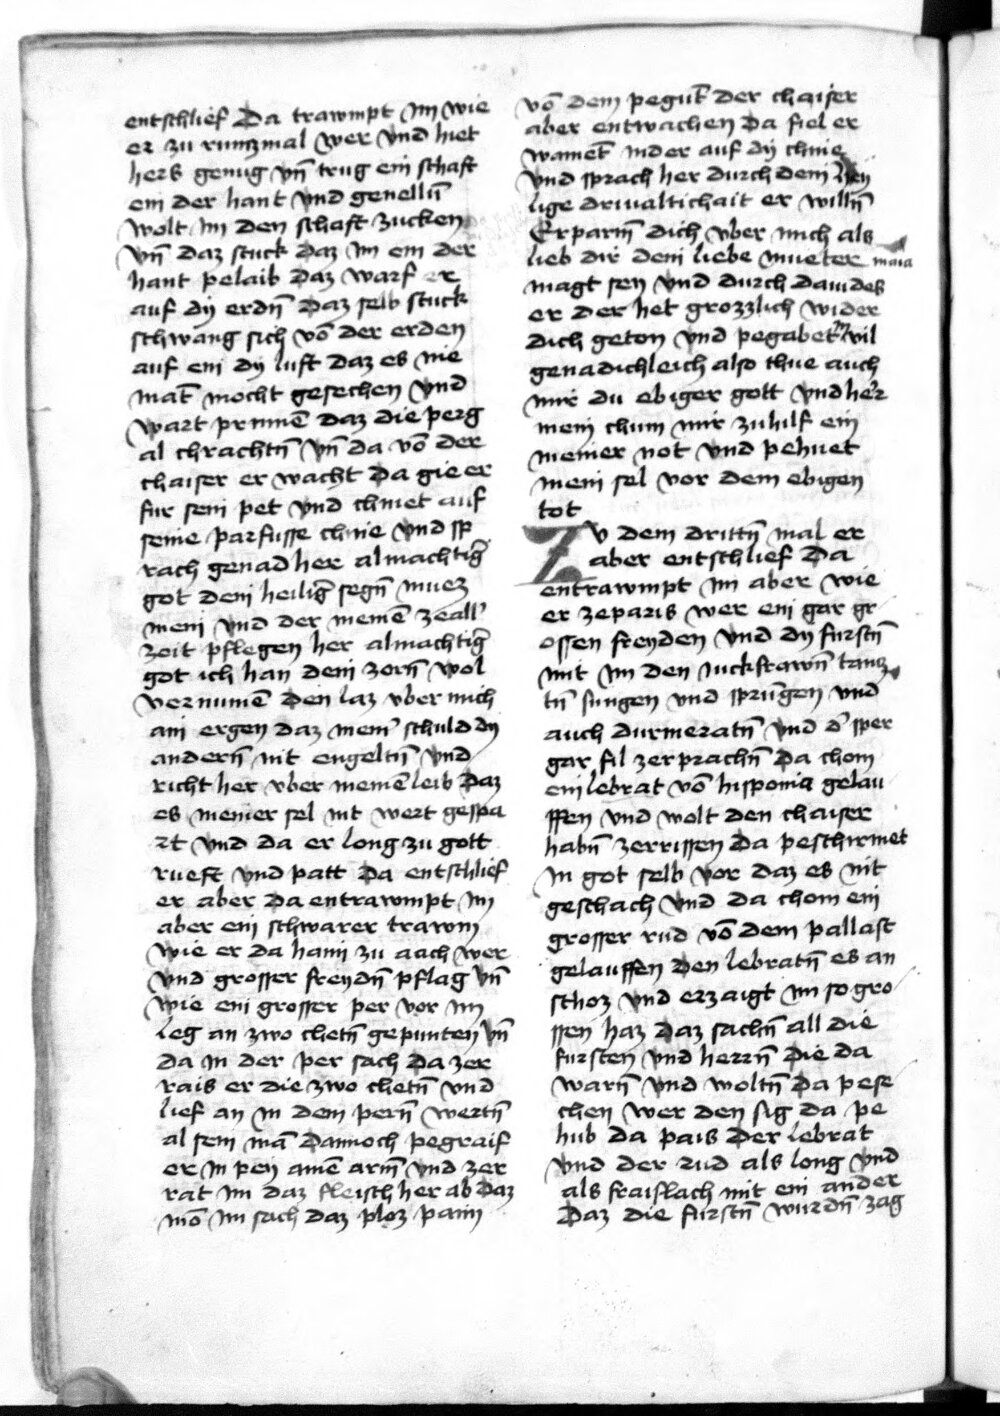 entschlief Da trawmpt im wie
er zu runzmal wer vnd hiet
hers genug vn̄ trug ein schaft
ein der hant vnd genellū
wolt im den schaft zucken
vn̄ daz stuck daz im ein der
hant pelaib daz warf er
auf dy erdn̄ daz selb stuck
schwang sich vō der erden
auf eni dy luft daz es nie
mat̄ mocht gesechen vnd
wart prinnē daz die perg
al chrachtn̄ vn̄ da vō der
chaiser er wacht da gie er
fur sein pet vnd chniet auf
seine parfusse chnie vnd sp
rach genad her almachtiḡ
got dein heiliḡ segn̄ muez
mein vnd der meinē ze all'
zeit pflegen her almachtiḡ
got ich han dein zorn̄ wol
vernumē den laz vber mich
ain ergen daz mein' schuld dy
andern̄ nit engeltn̄ vnd
richt her vber meinē leib daz
es meiner sel nit wert gespa
rt vnd da er long zu gott
rueft vnd patt da entschlief
er aber da entrawmpt im
aber ein schwarer trawm
wie er da haim zu aach wer
vnd grosser freydn̄ pflag vn̄
wie ein grosser per vor im
leg an zwo chetn̄ gepunten vn̄
da in der per sach da zer
rais er die zwo chetn̄ vnd
lief an in dem pern̄ wertn̄
al sein mā dannoch pegraif
er in pey ainē arm̄ vnd zer
rat im daz fleisch her ab daz
mō im sach daz ploz pain
vō dem pegūt der chaiser
aber entwachen da fiel er
wainet̄ nider auf dy chnie
vnd sprach her durch dein hey
lige driualtichait er willn̄
Erparm̄ dich vber mich als
lieb dir dein liebe mueter maia
magt sey vnd durch dauides
er der het grozzlich wider
dich geton vnd pegabet im vil
genadichleich also thue auch
mir du ebiger gott vnd he'r
mein chum mir zu hilf ein
meiner not vnd pehuet
mein sel vor dem ebigen
tot
Zu dem drittn̄ mal er
aber entschlief Da
entrawmpt im aber wie
er ze paris wer ein gar gr
ossen freyden vnd dy furstn̄
mit im den juckfrawn̄ tanz
tn̄ sungen vnd sprungen vnd
auch durnieratn̄ vnd d' sper
gar fil zerprachn̄ Da chom
ein lebrat vō hisponia gelau
ffen vnd wolt den chaiser
habn̄ zerrissen Da peschirmet
in got selb vor daz es nit
geschach vnd da chom ein
grosser rud vō dem pallast
gelauffen den lebratn̄ es an
schoz vnd erzaigt im so gro
ssen haz daz sachn̄ all die
fursten vnd herrn̄ die da
warn̄ vnd woltn̄ da pese
chen wer den sig da pe
hub da pais der lebrat
vnd der rud als long vnd
als fraislach mit ein ander
Daz die furstn̄ wurdn̄ zag